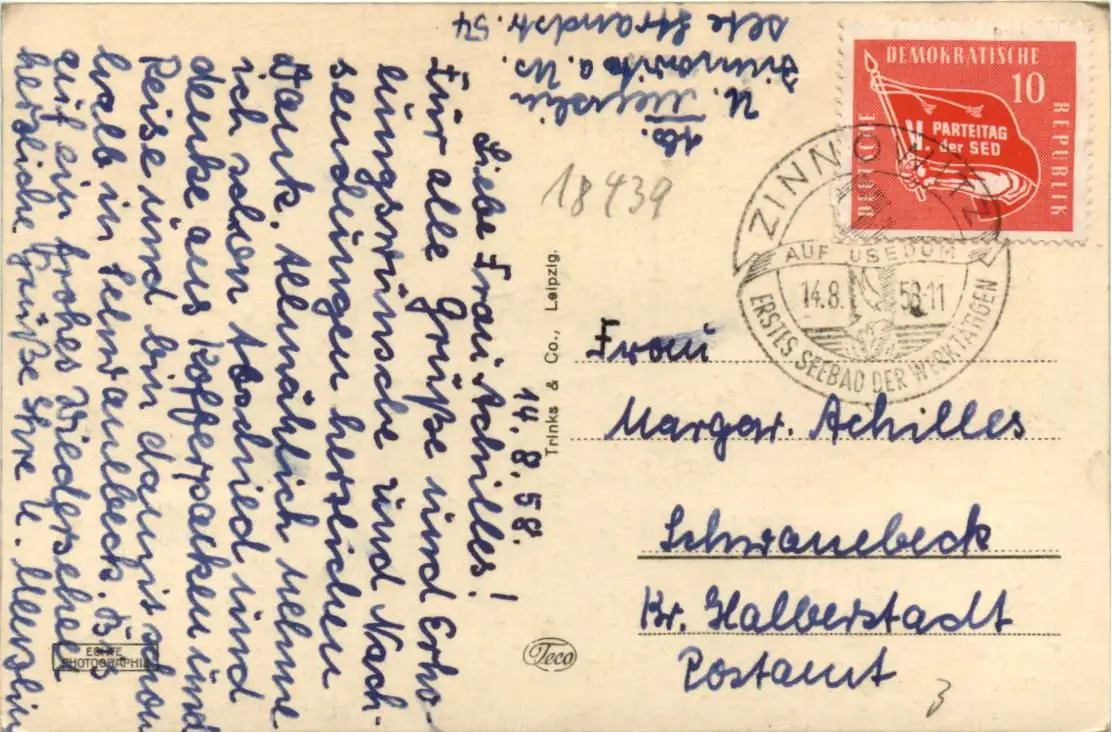 14.8.58.
Liebe Frau Achilles!
Für alle Grüße und Erho-
lungswünsche und Nach-
sendungen herzlichen
Dank. Allmählich nehme
ich schon Abschied und
denke ans Kofferpacken und
Reise und bin dann schon
halb in Schwanebeck. Bis
auf ein frohes Wiedersehen
herzliche Grüße Ihre U.
Abs.
U.
Zinnowitz a. Us.
Strandstr. 54
18439
Trinks & Co., Leipzig.
ECHTE
PHOTOGRAPHIE
Teco
DEUTSCHE
DEMOKRATISCHE
REPUBLIK
10
V. PARTEITAG
der SED
ZINNOWITZ
AUF USEDOM
14.8. 58-11
ERSTES SEEBAD DER WERKTÄTIGEN
Frau
Margar. Achilles
Schwanebeck
Kr. Halberstadt
Postamt
3